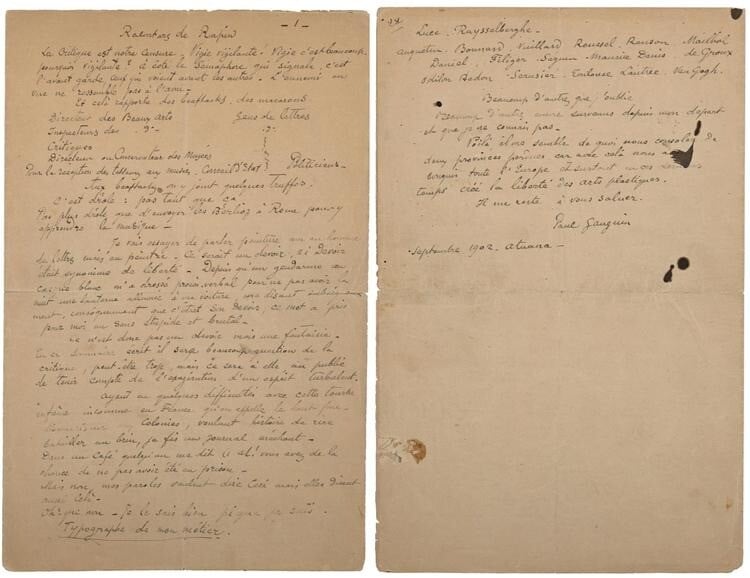 Racontars de Rapin
- 1 -
La Critique est notre censure, Vigie vigilante. Vigie c'est beaucoup
pourquoi vigilante ? à côté le Sémaphore qui signale, c'est
l'avant garde ceux qui voient avant les autres. L'ennemi en
vue ne ressemble pas à l'ami
Et cela rapporte des beefteacks, des macarons
Directeur des Beaux Arts Gens de lettres
Inspecteurs des - d°- d°-
Critiques
Directeur ou Conservateur des Musées
Pour la réception des tableaux au musée, Conseil d'Etat Politiciens -
Aux beefteacks on y joint quelques truffes.
C'est drôle : pas tant que ça
Pas plus drôle que d'envoyer les Berlioz à Rome pour y
apprendre la musique -
Je vais essayer de parler peinture, non en homme
de lettres mais en peintre. Ce serait un devoir, si Devoir
était synonime de liberté - Depuis qu'un gendarme en
casque blanc m'a dressé procès verbal pour ne pas avoir
une lanterne allumée à ma voiture, me disant
conséquemment que c'était son Devoir, ce mot a pris
pour moi un sens stupide et brutal -
Ce n'est donc pas un devoir mais une fantaisie -
En ce sommaire écrit il sera beaucoup question de la
critique, peut-être trop, mais ce sera à elle au public
de tenir compte de l'exagération d'un esprit turbulent.
Ayant eu quelques difficultés avec cette tourbe
infâme inconnue en France qu'on appelle le haut
Colonies, voulant histoire de rire
batailler un brin, je fis un journal méchant -
Dans un Café quelqu'un me dit : ah ! vous avez de la
chance de ne pas avoir été en prison -
Mais non, mes paroles veulent dire Ceci mais elles disent
aussi Cela -
Oh ! que non - Je le sais bien
Typographe de mon métier.
28)
Luce - Ruysselberghe -
Augustin - Bonnard, Vuillard Roussel, Ranson, Mailhol
Daniel, Filiger Seguin Maurice Denis, de Groux
Odilon Redon - Serusier, Toulouse Lautrec, Van Gogh.
Beaucoup d'autres que j'oublie
Beaucoup d'autres encore survenus depuis mon départ
et que je ne connais pas -
Voilà il me semble de quoi nous consoler de
deux provinces perdues car avec celà nous avons
conquis toute l'Europe et surtout en ces derniers
temps créé la liberté des arts plastiques.
Il me reste à vous saluer.
Paul Gauguin
Septembre 1902. Atuana -